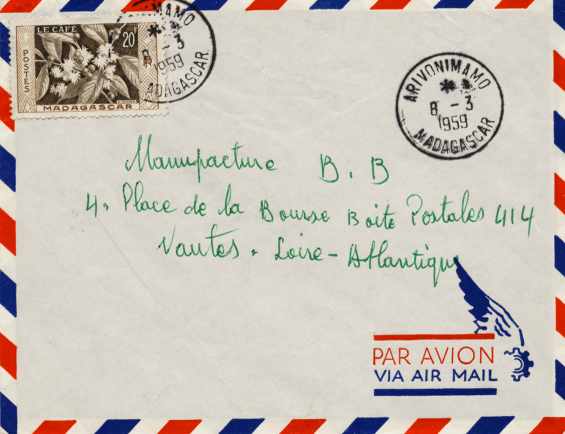 LE CAFÉ
20F
POSTES
MADAGASCAR
IMAMO
8 - 3
1959
MADAGASCAR
ARIVONIMAMO
8 - 3
1959
MADAGASCAR
Manufacture B.B
4. Place de la Bourse Boite Postales 414
Nantes. Loire-Atlantique
PAR AVION
VIA AIR MAIL